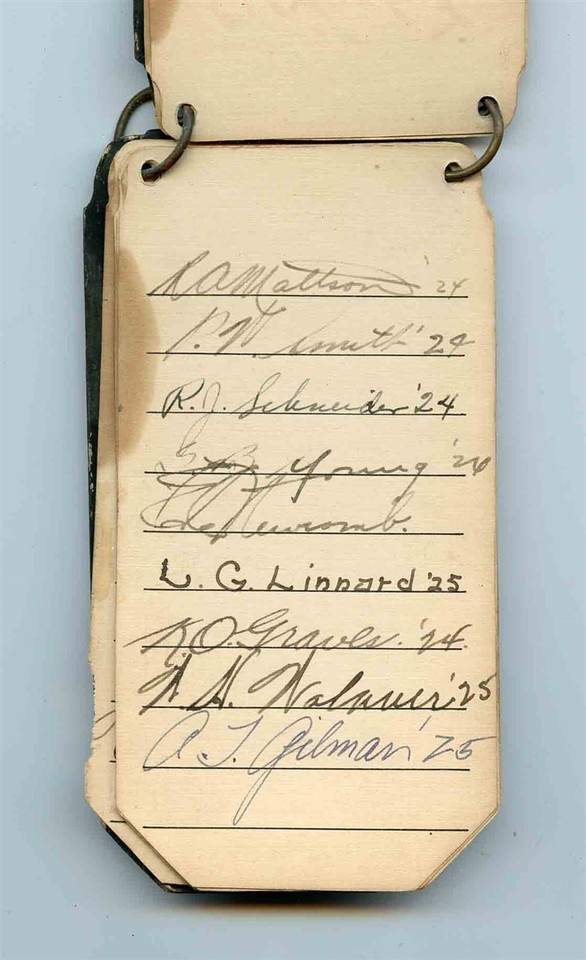 R A Mattson '24
P. W. Smith '24
R. J. Schneider '24
Young '24
Newcomb.
L. G. Linnard '25
R. O. Graves. '24
W. H. '25
A. T. Gilman '25